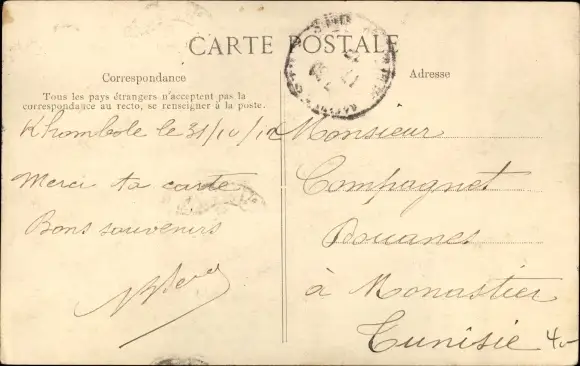 CARTE POSTALE
Correspondance
Tous les pays étrangers n'acceptent pas la
correspondance au recto, se renseigner à la poste.
Khombole le 31/10/10
Merci ta carte
Bons souvenirs
Adresse
Monsieur
Compagnet
Douanes
à Monastier
Tunisie
4.-